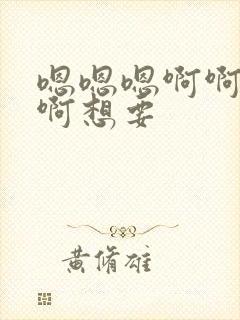 嗯嗯嗯啊啊
啊想要
黄脩雄